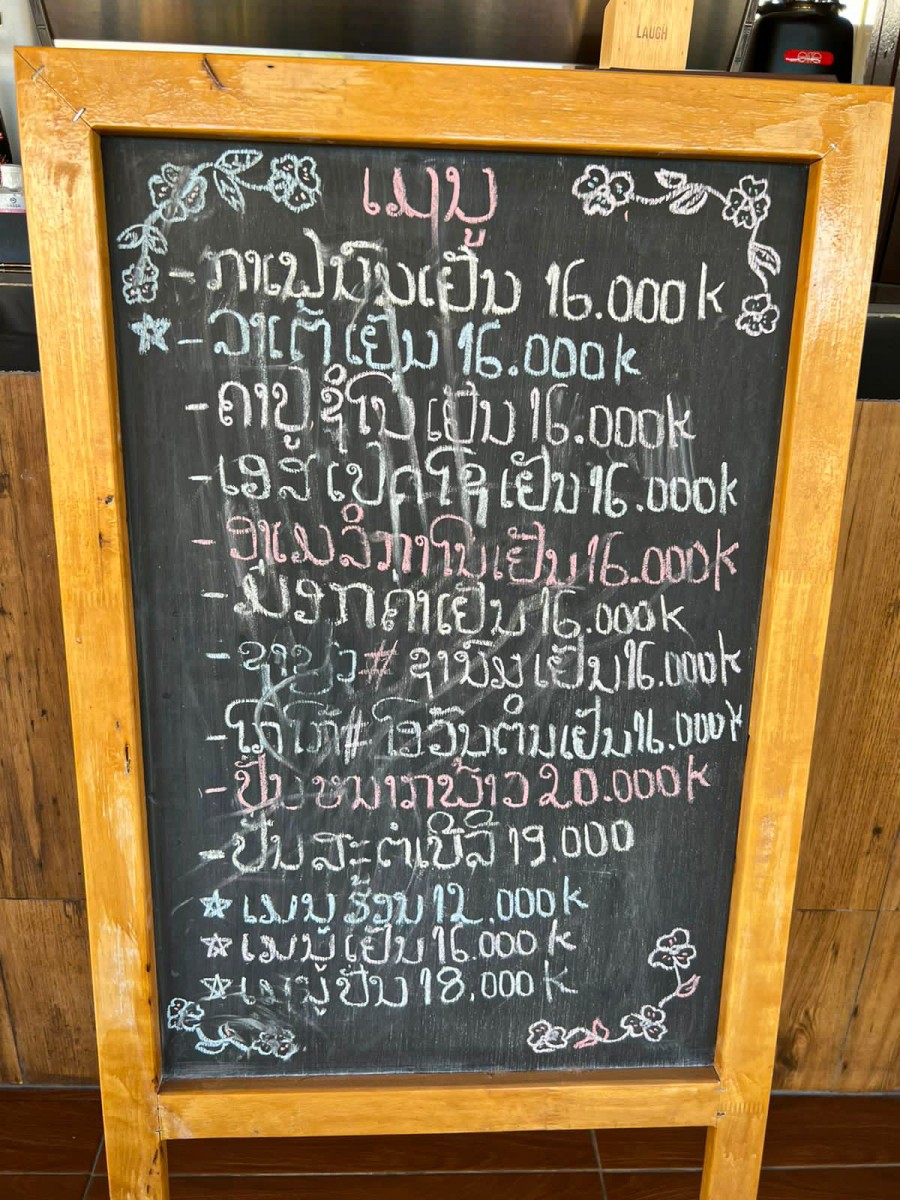 LAUGH
ເມນູ
- ກາເຟນົມເຢັນ 16.000k
- ລາເຕ້ເຢັນ 16.000k
- ຄາປູຊິໂນເຢັນ 16.000k
- ເອສເປດໂຊເຢັນ 16.000k
- ອາເມລິກາໂນເຢັນ 16.000k
- ມ໋ອກຄ່າເຢັນ 16.000k
- ຊາຂຽວ # ຊານົມເຢັນ 16.000k
- ໂກໂກ້ # ໂອວັນຕິນເຢັນ 16.000k
- ປັ່ນໝາກພ້າວ 20.000k
- ປັ່ນສະຕໍເບີລີ 19.000
ເມນູຮ້ອນ 12.000k
ເມນູເຢັນ 16.000k
ເມນູປັ່ນ 18.000k